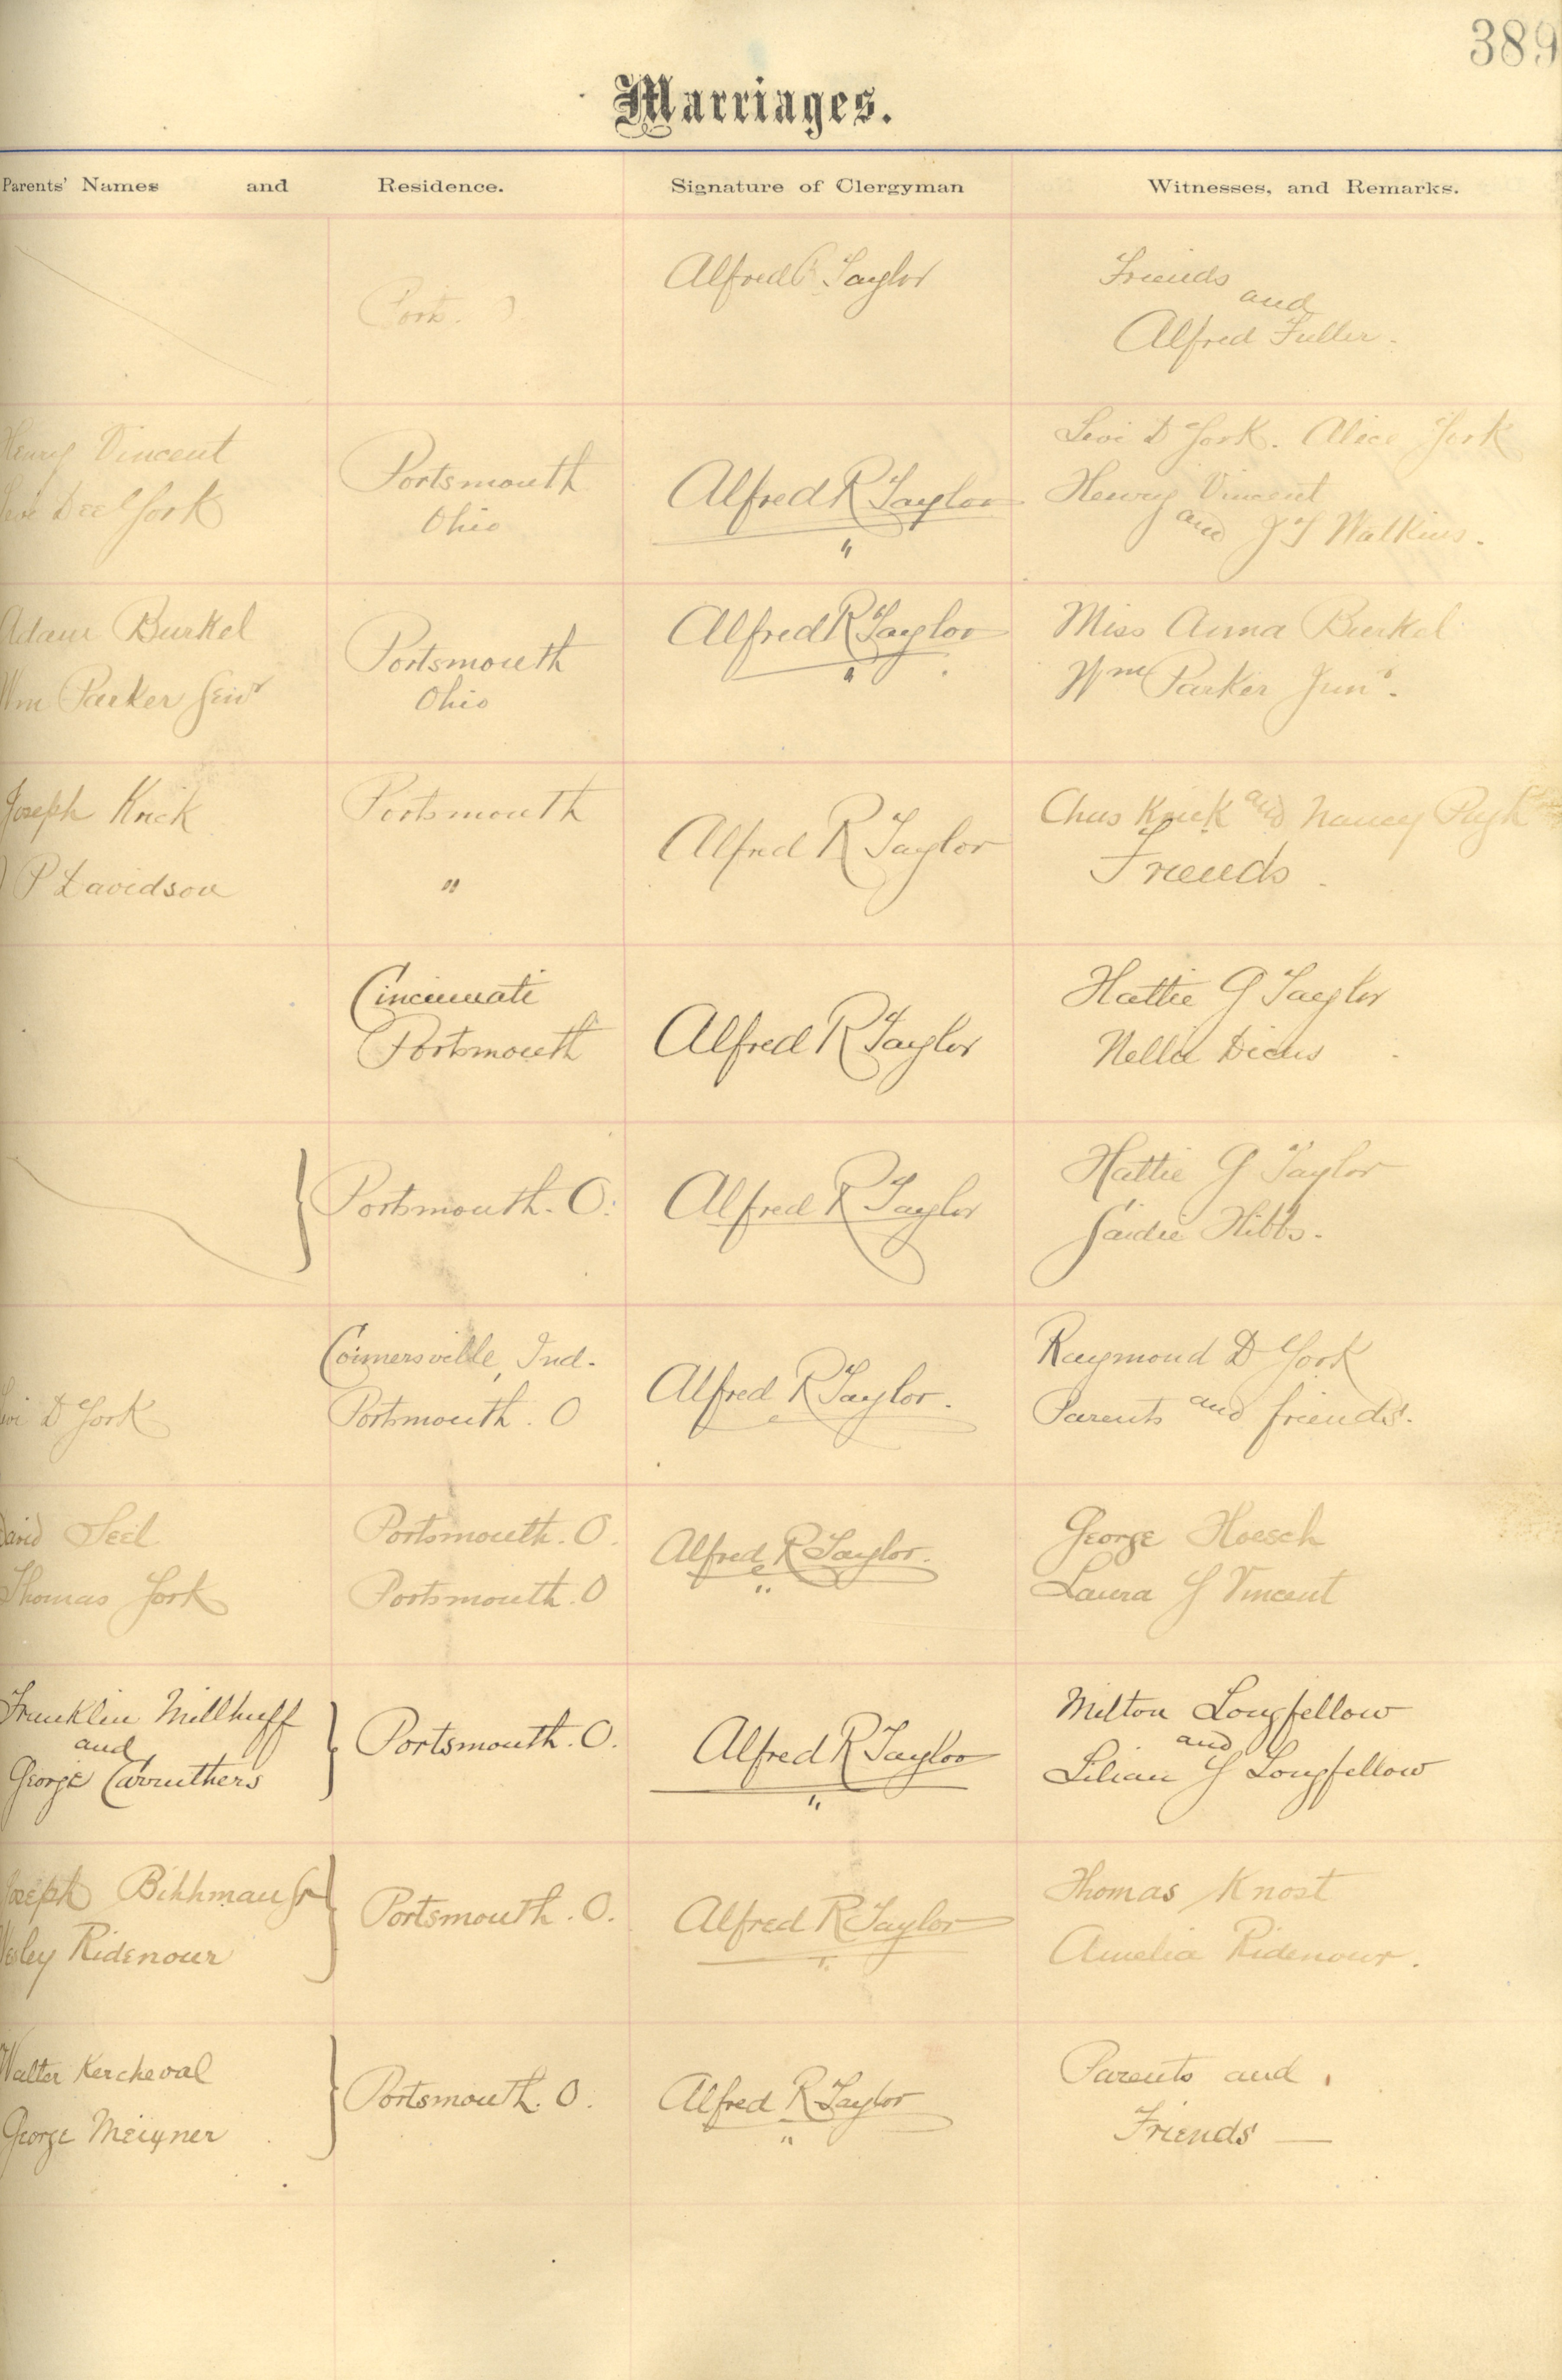 389
Marriages.
Parents' Names and Residence. Signature of Clergyman Witnesses, and Remarks.
Alfred R Taylor
Friends
and
Alfred Fuller.
Henry Vincent
York
Portsmouth
Ohio
Alfred R Taylor
"
Levi D York. Alice York
Henry Vincent
and J Y Watkins.
Adam Burkel
Wm Parker Senr
Portsmouth
Ohio
Alfred R Taylor
"
Miss Anna Burkel
Wm Parker Junr.
Joseph Krick
P Davidson
Portsmouth
"
Alfred R Taylor
Chas Krick and Nancy
Friends.
Cincinnati
Portsmouth
Alfred R Taylor
Hattie G Taylor
Nella Dicus
Portsmouth. O.
Alfred R Taylor
Hattie G Taylor
Saidie Hibbs.
Levi D York
Connersville, Ind.
Portsmouth. O
Alfred R Taylor.
Raymond D York
Parents and friends.
David Seel
Thomas York
Portsmouth. O.
Portsmouth. O
Alfred R Taylor.
"
George Hoesch
Laura Y Vincent
Franklin Millhuff
and
George Carruthers
Portsmouth. O.
Alfred R Taylor
"
Milton Longfellow
and
Lilian Y Longfellow
Joseph Bihhman Sr
Wesley Ridenour
Portsmouth. O.
Alfred R Taylor
"
Thomas Knost
Amelia Ridenour.
Walter Kercheval
George
Portsmouth. O.
Alfred R Taylor
"
Parents and
Friends —